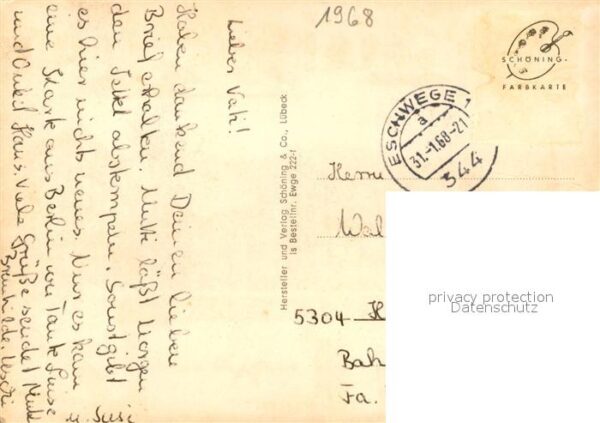 1968
Lieber Vati!
Haben dankend Deinen lieben
Brief erhalten. Mutti läßt Morgen
den abstempeln. Sonst gibt
es hier nichts neues. Nur es kam
eine Karte aus Berlin von Tante Luise
und Onkel Hans Viele Grüße sendet Mutti
Brunhilde,
Susi
Hersteller und Verlag Schöning & Co., Lübeck
Is Bestellnr. Ewge 222-1
SCHÖNING-
FARBKARTE
ESCHWEGE 1
a
31.-1.68-21
344
Herrn
Wal
5304
Bah
Fa.
privacy protection
Datenschutz